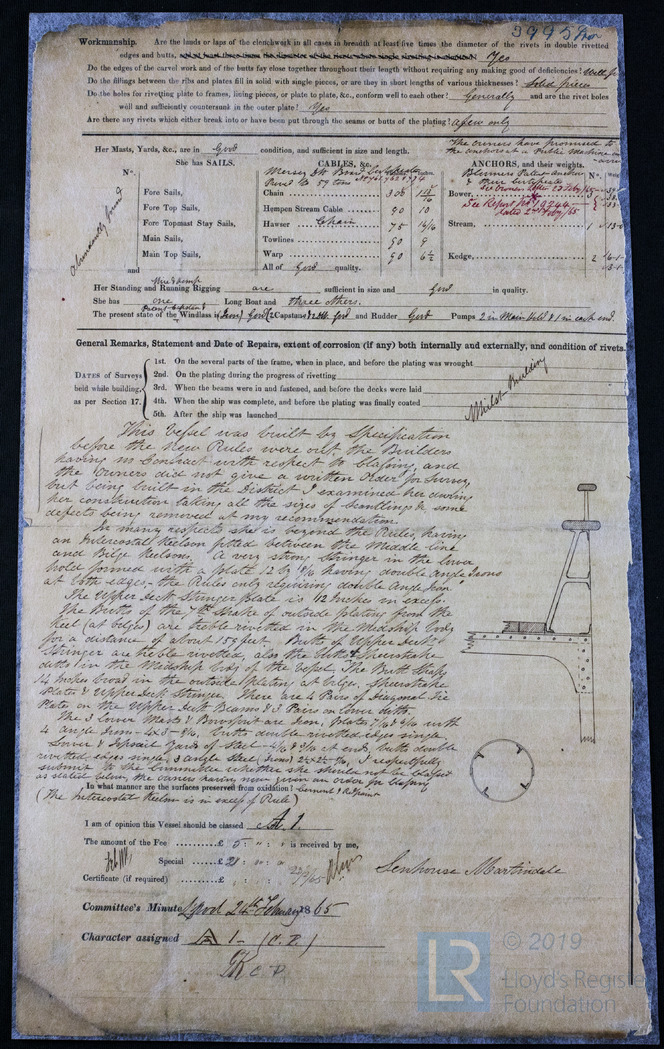 3995 Iron
Workmanship. Are the lands or laps of the clenchwork in all cases in breadth at least five times the diameter of the rivets in double rivetted
edges and butts, Yes
Do the edges of the carvel work and of the butts fay close together throughout their length without requiring any making good of deficiencies?
Do the fillings between the ribs and plates fill in solid with single pieces, or are they in short lengths of various thicknesses? Solid pieces
Do the holes for rivetting plate to frames, lining pieces, or plate to plate, &c., conform well to each other? Generally and are the rivet holes
well and sufficiently countersunk in the outer plate? Yes
Are there any rivets which either break into or have been put through the seams or butts of the plating? a few only
The owners have promised to
the anchors at a Public Machine
Her Masts, Yards, &c., are in Good condition, and sufficient in size and length.
She has SAILS.
CABLES, &c.
ANCHORS, and their weights.
Nos.
Fore Sails,
Fore Top Sails,
Fore Topmast Stay Sails,
Main Sails,
Main Top Sails,
and
Abundantly found
Chain 300 1 15/16
Hempen Stream Cable 90 10
Hawser Chain 75
Towlines 90 9
Warp 90 6½
All of Good quality.
Bower,
See Report No 19244
dated 21 Feby/65
Stream, 1
Kedge, 2
Her Standing and Running Rigging Wire & Hemp are sufficient in size and Good in quality.
She has one Long Boat and three others.
The present state of the Windlass is (Iron) Good (2 Capstans) Good and Rudder Good Pumps 2 in Main Hold & 1 in each end.
General Remarks, Statement and Date of Repairs, extent of corrosion (if any) both internally and externally, and condition of rivets.
DATES of Surveys
held while building,
as per Section 17.
1st. On the several parts of the frame, when in place, and before the plating was wrought
2nd. On the plating during the progress of rivetting
3rd. When the beams were in and fastened, and before the decks were laid
4th. When the ship was complete, and before the plating was finally coated
5th. After the ship was launched
Whilst Building
This Vessel was built by Specification
before the New Rules were out, the Builders
having no Contract with respect to Classing, and
the Owners did not give a written Order for Survey,
but being built in the District I examined her during
her construction taking all the sizes of Scantlings & some
defects being removed at my recommendation.
In many respects she is beyond the Rules, having
an Intercostal Keelson fitted between the Middle line
and Bilge Keelsons. A very strong stringer in the lower
hold formed with a plate 12 by 10/16 having double Angle Irons
at both edges - the Rules only requiring double Angle Iron
The Upper Deck Stringer Plate is 12 Inches in excess.
The Butts of the 7th Strake of outside plating from the
keel (at bilges) are treble rivetted in the Midship body
for a distance of about 159 feet. Butts of Upper Deck
Stringer are treble rivetted, also the butts of Sheerstrake
ditto in the Midship body of the vessel. The Butt Straps
14 Inches broad in the outside plating at bilge, Sheerstrake
Plates & Upper Deck Stringer. There are 4 Pairs of Diagonal Tie
Plates on the Upper Deck Beams & 3 Pairs on lower ditto
The 3 lower Masts & Bowsprit are Iron, Plates 7/16 & 6/16 with
4 Angle Iron - butts double rivetted edges single.
Lower & Topsail Yards of Steel at ends, butts double
rivetted edges single, 3 angle Steel (Irons) I respectfully
submit to the Committee whether she should not be Classed
as stated below, the owners having now given an order for Classing
In what manner are the surfaces preserved from oxidation? Cement & Red paint
(The Intercostal Keelson is in excess of Rule)
I am of opinion this Vessel should be classed A 1.
The amount of the Fee £ 5 : " : " is received by me,
Special £ 21 : " : "
Certificate (if required) £ : :
Senhouse Martindale
Committee's Minute Lpool 24th February 1865
Character assigned A 1 - (C.P.)
C.P.
LR © 2019
Lloyd's Register
Foundation